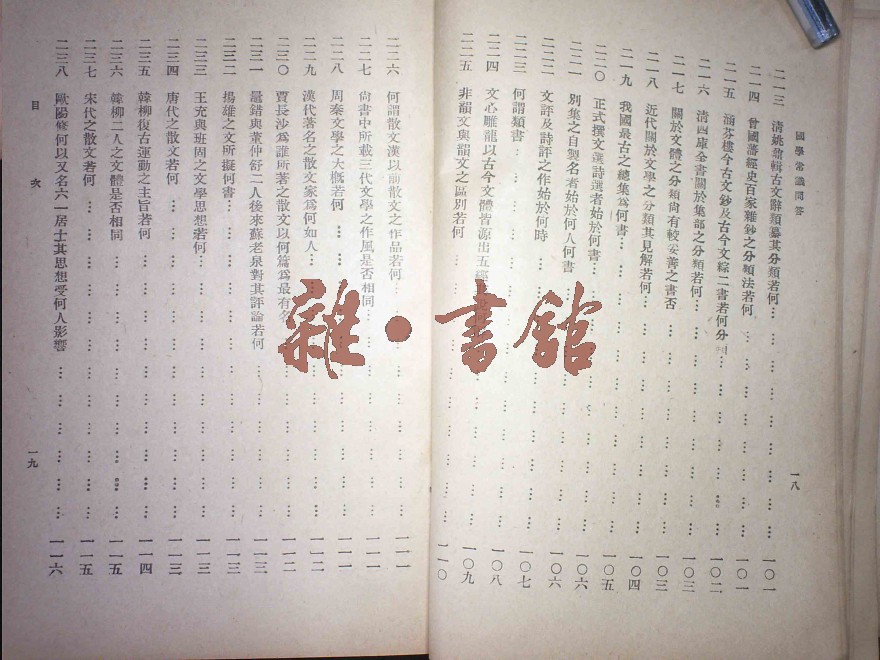 國學常識問答
一八
二一三 清姚鼐輯古文辭類纂其分類若何 一〇一
二一四 曾國藩經史百家雜鈔之分類法若何 一〇一
二一五 涵芬樓今古文鈔及古今文綜二書若何分 一〇二
二一六 清四庫全書關於集部之分類若何 一〇三
二一七 關於文體之分類尚有較妥善之書否 一〇三
二一八 近代關於文學之分類其見解若何 一〇四
二一九 我國最古之總集爲何書 一〇五
二二〇 正式撰文選詩選者始於何書 一〇五
二二一 別集之自製名者始於何人何書 一〇六
二二二 文評及詩評之作始於何時 一〇六
二二三 何謂類書 一〇七
二二四 文心雕龍以古今文體皆源出五經 一〇八
二二五 非韻文與韻文之區別若何 一〇九
一一〇
二二六 何謂散文漢以前散文之作品若何 一一一
二二七 尙書中所載三代文學之作風是否相同 一一一
二二八 周秦文學之大概若何 一一一
二二九 漢代著名之散文家爲何如人 一一二
二三〇 賈長沙爲誰所著之散文以何篇爲最有名 一一二
二三一 鼂錯與董仲舒二人後來蘇老泉對其評論若何 一一三
二三二 揚雄之文所擬何書 一一三
二三三 王充與班固之文學思想若何 一一三
二三四 唐代之散文若何 一一三
二三五 韓柳復古運動之主旨若何 一一四
二三六 韓柳二人之文體是否相同 一一五
二三七 宋代之散文若何 一一五
二三八 歐陽修何以又名六一居士其思想受何人影響 一一六
目次
一九
雜·書館